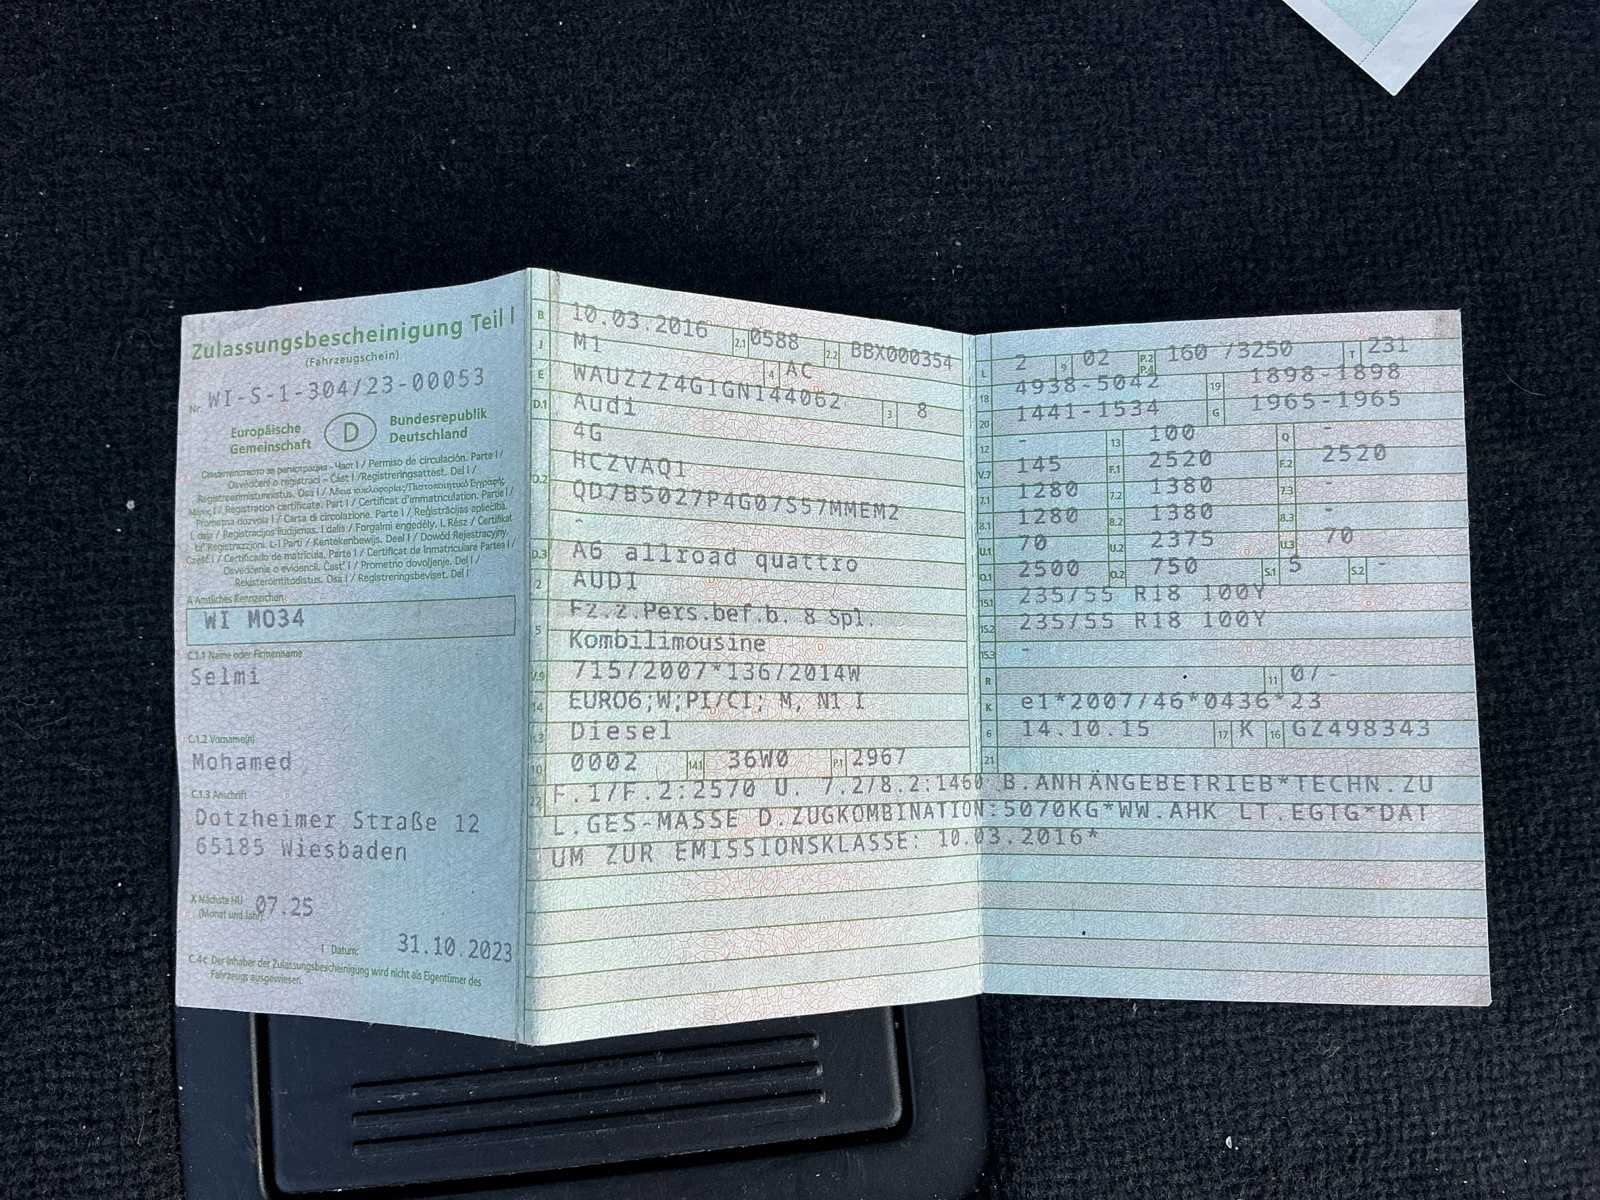 Zulassungsbescheinigung Teil I
(Fahrzeugschein)
Nr. WI-S-1-304/23-00053
Europäische Gemeinschaft
D
Bundesrepublik Deutschland
Свидетелство за регистрация - Част I / Permiso de circulación. Parte I /
Osvědčení o registraci - Část I / Registreringsattest. Del I /
Registreerimistunnistus. Osa I / Άδεια κυκλοφορίας/Πιστοποιητικό Εγγραφής
Μέρος I / Registration certificate. Part I / Certificat d'immatriculation. Partie I /
Prometna dozvola I / Carta di circolazione. Parte I / Reģistrācijas apliecība.
I. daļa / Registracijos liudijimas. I dalis / Forgalmi engedély. I. Rész / Certifikat
ta' Registrazzjoni. L-I Parti / Kentekenbewijs. Deel I / Dowód Rejestracyjny.
Część I / Certificado de matrícula. Parte I / Certificat de înmatriculare Partea I /
Osvedčenie o evidencii. Časť I / Prometno dovoljenje. Del I /
Rekisteröintitodistus. Osa I / Registreringsbeviset. Del I
A Amtliches Kennzeichen
WI MO34
C.1.1 Name oder Firmenname
Selmi
C.1.2 Vorname(n)
Mohamed
C.1.3 Anschrift
Dotzheimer Straße 12
65185 Wiesbaden
X Nächste HU (Monat und Jahr) 07.25
I Datum: 31.10.2023
C.4c Der Inhaber der Zulassungsbescheinigung wird nicht als Eigentümer des
Fahrzeugs ausgewiesen.
B 10.03.2016 2.1 0588 2.2 BBX000354
J M1 4 AC
E WAUZZZ4G1GN144062 3 8
D.1 Audi
4G
D.2 HCZVAQ1
QD7B5027P4G07S57MMEM2
-
D.3 A6 allroad quattro
2 AUDI
5 Fz.z.Pers.bef.b. 8 Spl.
Kombilimousine
V.9 715/2007*136/2014W
14 EURO6;W;PI/CI; M, N1 I
P.3 Diesel
10 0002 14.1 36W0 P.1 2967
L 2 9 02 P.2 P.4 160 /3250 T 231
18 4938-5042 19 1898-1898
20 1441-1534 G 1965-1965
12 - 13 100 Q -
V.7 145 F.1 2520 F.2 2520
7.1 1280 7.2 1380 7.3 -
8.1 1280 8.2 1380 8.3 -
U.1 70 U.2 2375 U.3 70
O.1 2500 O.2 750 S.1 5 S.2 -
15.1 235/55 R18 100Y
15.2 235/55 R18 100Y
15.3 -
R 11 0/-
K e1*2007/46*0436*23
6 14.10.15 17 K 16 GZ498343
21
22 F.1/F.2:2570 U. 7.2/8.2:1460 B.ANHÄNGEBETRIEB*TECHN.ZU
L.GES-MASSE D.ZUGKOMBINATION:5070KG*WW.AHK LT.EGTG*DAT
UM ZUR EMISSIONSKLASSE: 10.03.2016*